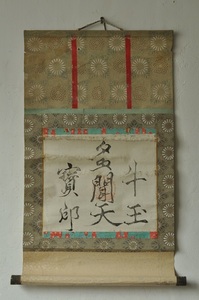 牛玉
多聞天
寶印